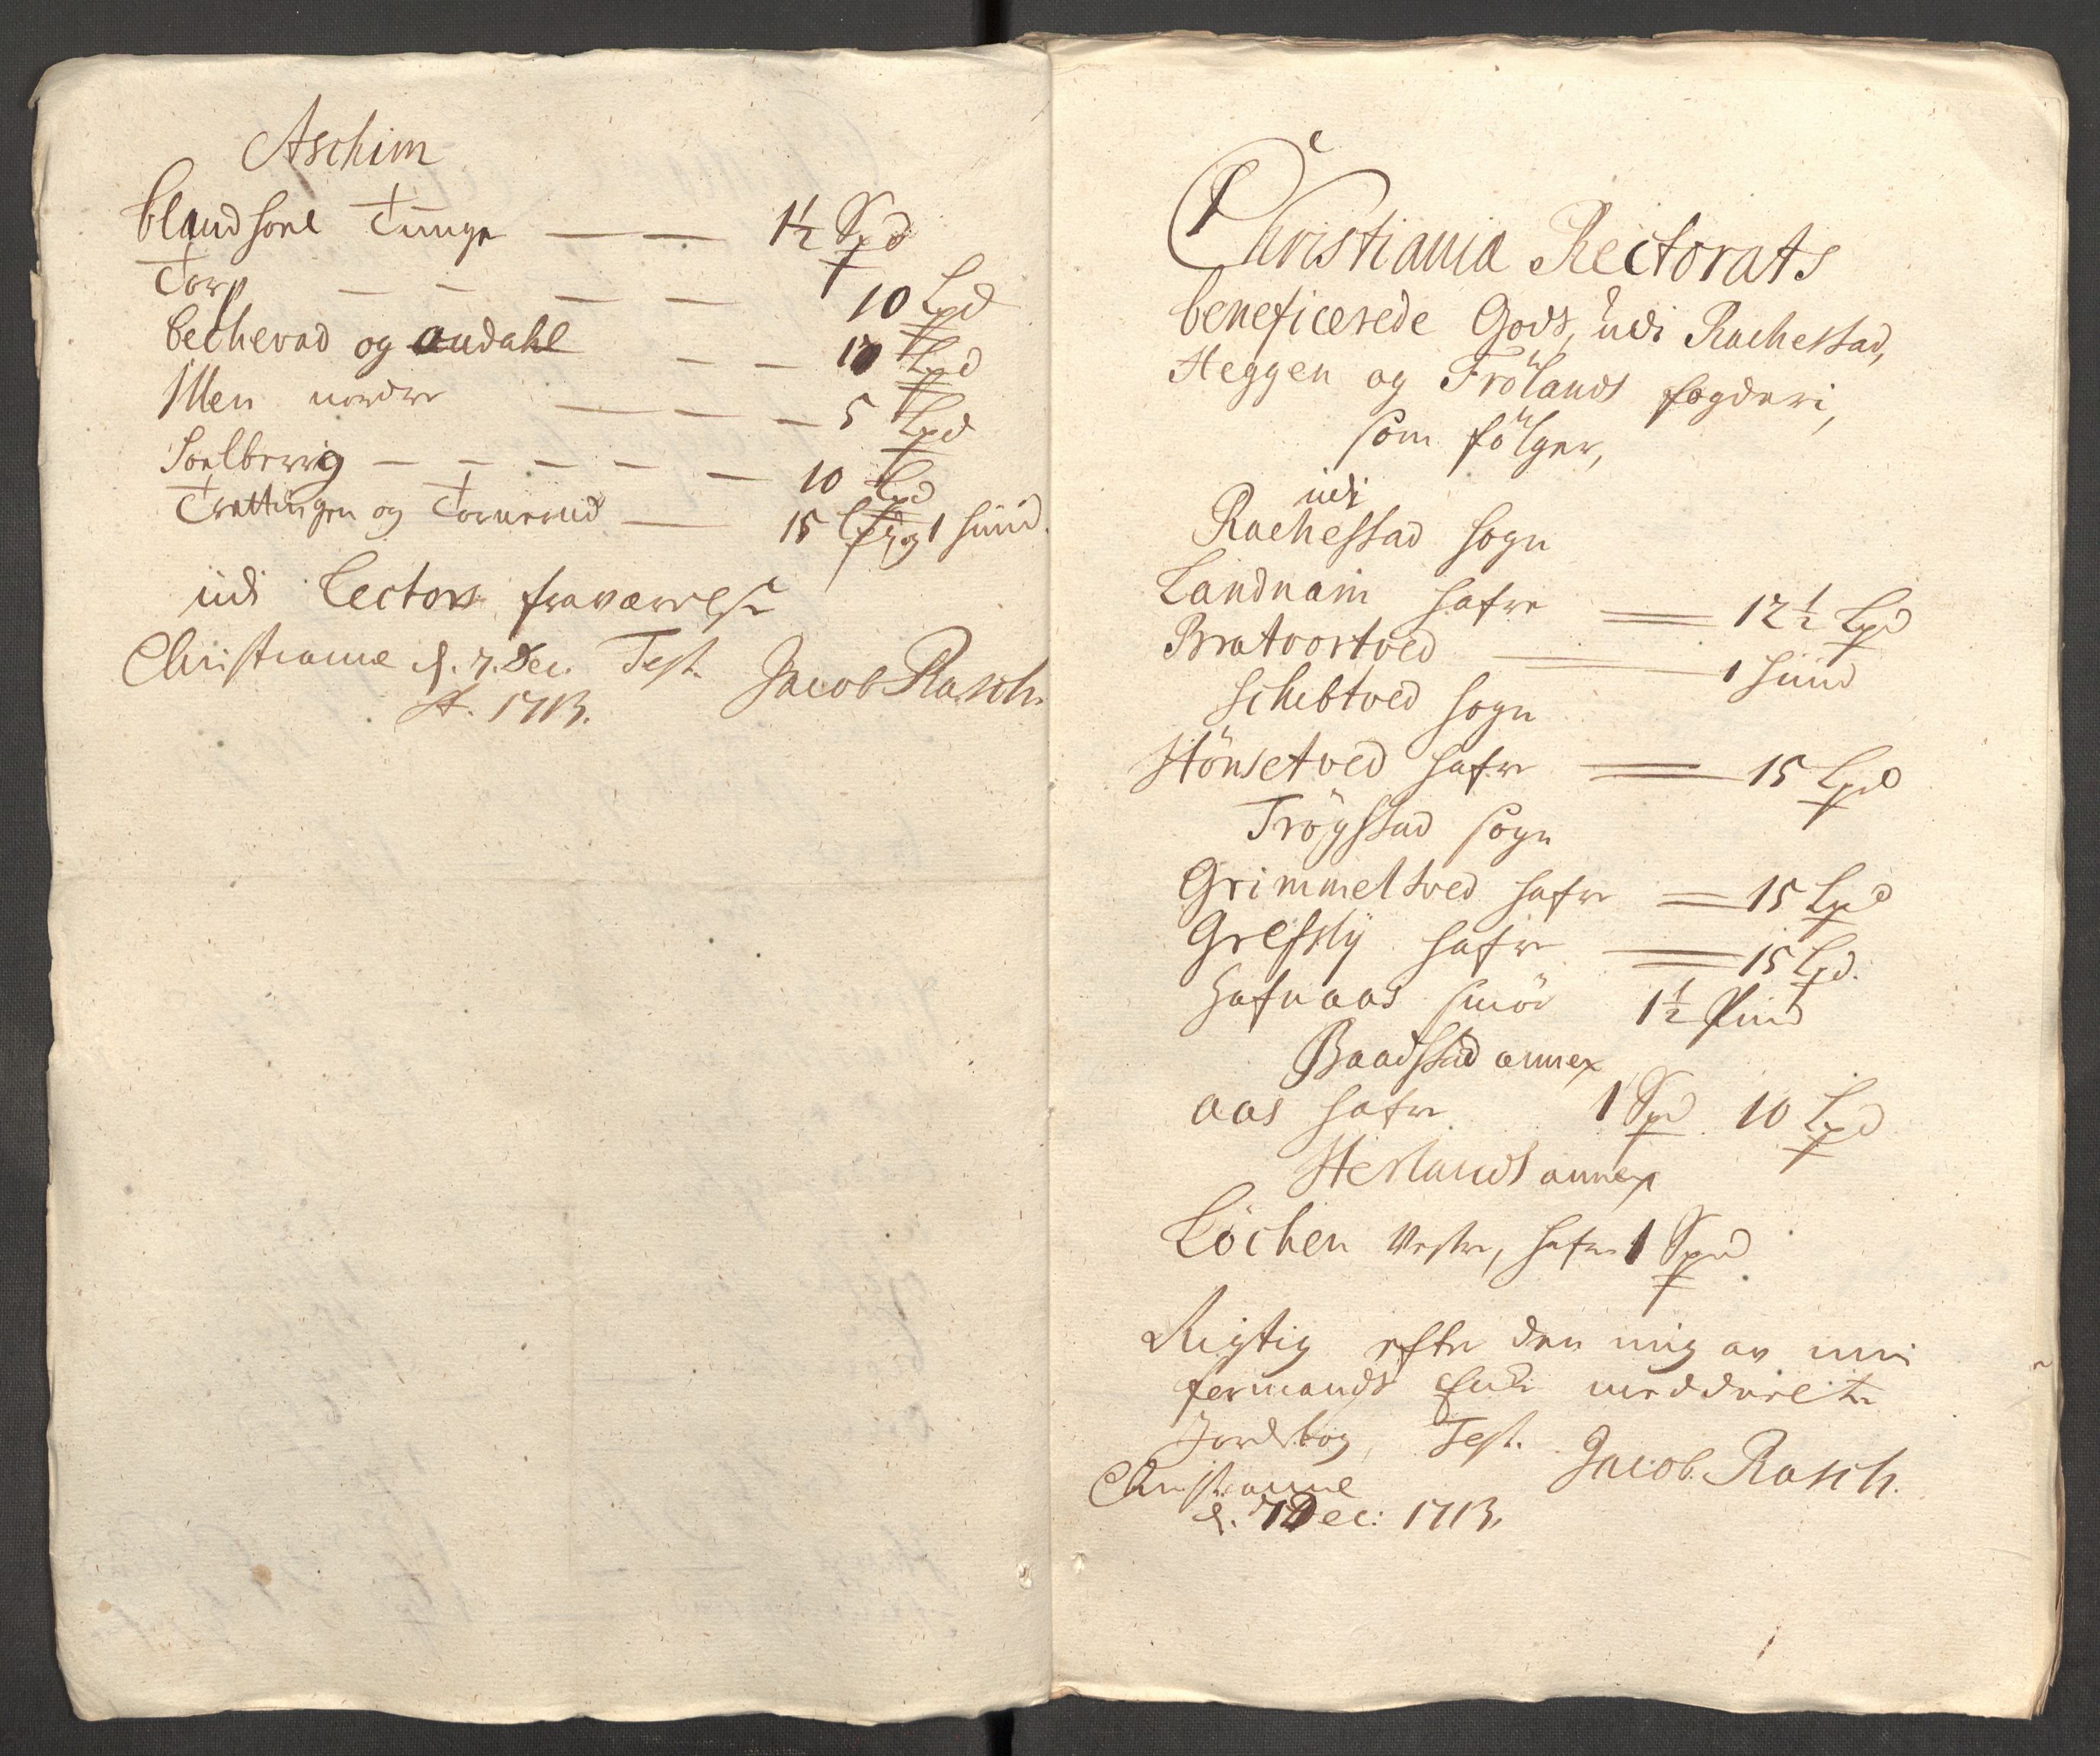 Aschim
blandsone Tunge — — 1½ Spd
Torp — — — — 10 Lpd
Becherad og audahl — — 10 Lpd
Men nordre — — — 5 Lpd
Soelberrig — — — — — 10 Lpd
Trattingen og Tornerud — 15 Lpd og 1 hund.
udi Lectors fraværelse
Christiania d. 7. Dec. Test. Jacob Rasch.
A. 1713.
Christiania Rectorats
beneficerede Gods, udi Rachestad,
Heggen og Frölands fogderi,
som fölger,
udi
Rachestad sogn
Landnaim hafre = 12½ Lpd
Bratvostved = 1 hund
Schebtved sogn
Hönsetved hafre = 15 Lpd
Trögstad sogn
Grimmeltved hafre = 15 Lpd
Grefsly hafre = 15 Lpd.
Hafnaas smör 1½ Pund
Baadstad annex
aas hafre 1 Spd 10 Lpd
Herlands annex
Löchen Vestre, hafre 1 Spd
Rigtig efter den mig av min
formands meddeelte
Jordebog, Test. Jacob. Rasch.
Christiania
d. 7 Dec: 1713.